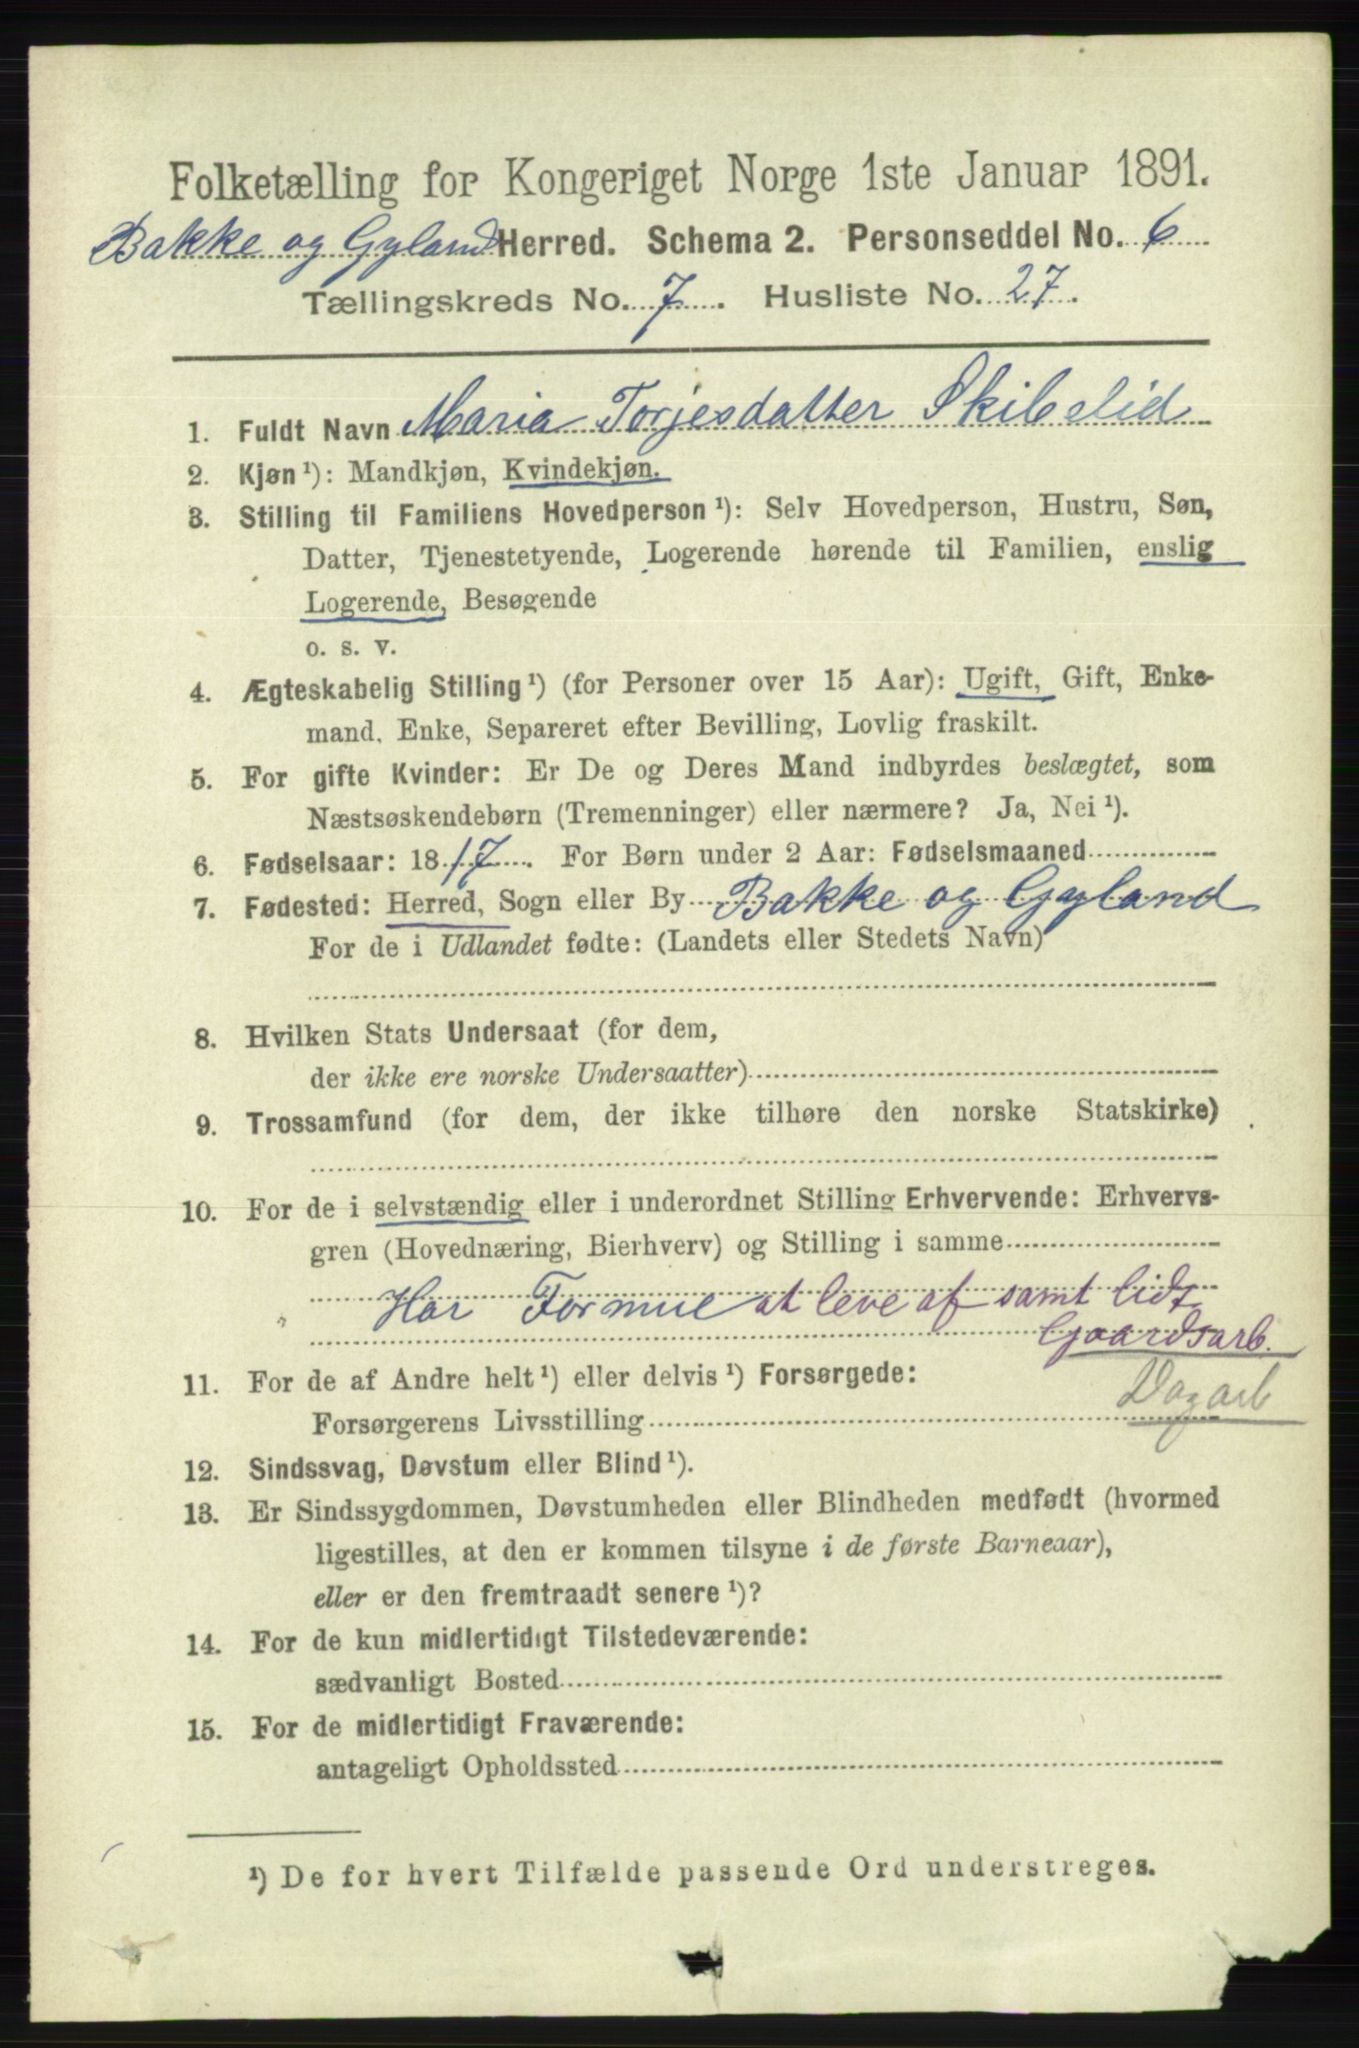 Folketælling for Kongeriget Norge 1ste Januar 1891.
Bakke og Gyland Herred. Schema 2. Personseddel No. 6
Tællingskreds No. 7. Husliste No. 27.
1. Fuldt Navn Maria Torjesdatter Skibelid
2. Kjøn ¹): Mandkjøn, Kvindekjøn.
3. Stilling til Familiens Hovedperson ¹): Selv Hovedperson, Hustru, Søn,
Datter, Tjenestetyende, Logerende hørende til Familien, enslig
Logerende, Besøgende
o. s. v.
4. Ægteskabelig Stilling ¹) (for Personer over 15 Aar): Ugift, Gift, Enke-
mand, Enke, Separeret efter Bevilling, Lovlig fraskilt.
5. For gifte Kvinder: Er De og Deres Mand indbyrdes beslægtet, som
Næstsøskendebørn (Tremenninger) eller nærmere? Ja, Nei ¹).
6. Fødselsaar: 1817. For Børn under 2 Aar: Fødselsmaaned
7. Fødested: Herred, Sogn eller By Bakke og Gyland
For de i Udlandet fødte: (Landets eller Stedets Navn)
8. Hvilken Stats Undersaat (for dem,
der ikke ere norske Undersaatter)
9. Trossamfund (for dem, der ikke tilhøre den norske Statskirke)
10. For de i selvstændig eller i underordnet Stilling Erhvervende: Erhvervs-
gren (Hovednæring, Bierhverv) og Stilling i samme
Har Formue at leve af samt lidt
Gaardsarb.
11. For de af Andre helt ¹) eller delvis ¹) Forsørgede:
Dagarb
Forsørgerens Livsstilling
12. Sindssvag, Døvstum eller Blind ¹).
13. Er Sindssygdommen, Døvstumheden eller Blindheden medfødt (hvormed
ligestilles, at den er kommen tilsyne i de første Barneaar),
eller er den fremtraadt senere ¹)?
14. For de kun midlertidigt Tilstedeværende:
sædvanligt Bosted
15. For de midlertidigt Fraværende:
antageligt Opholdssted
¹) De for hvert Tilfælde passende Ord understreges.